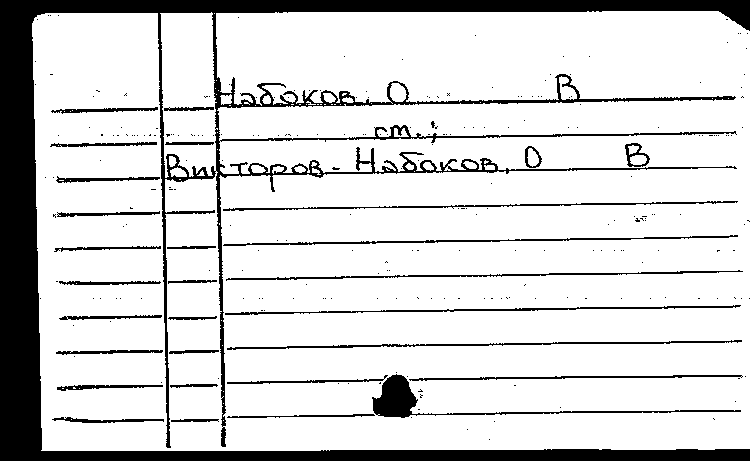 Набоков, О В
ст.;
Викторов - Набоков, О В